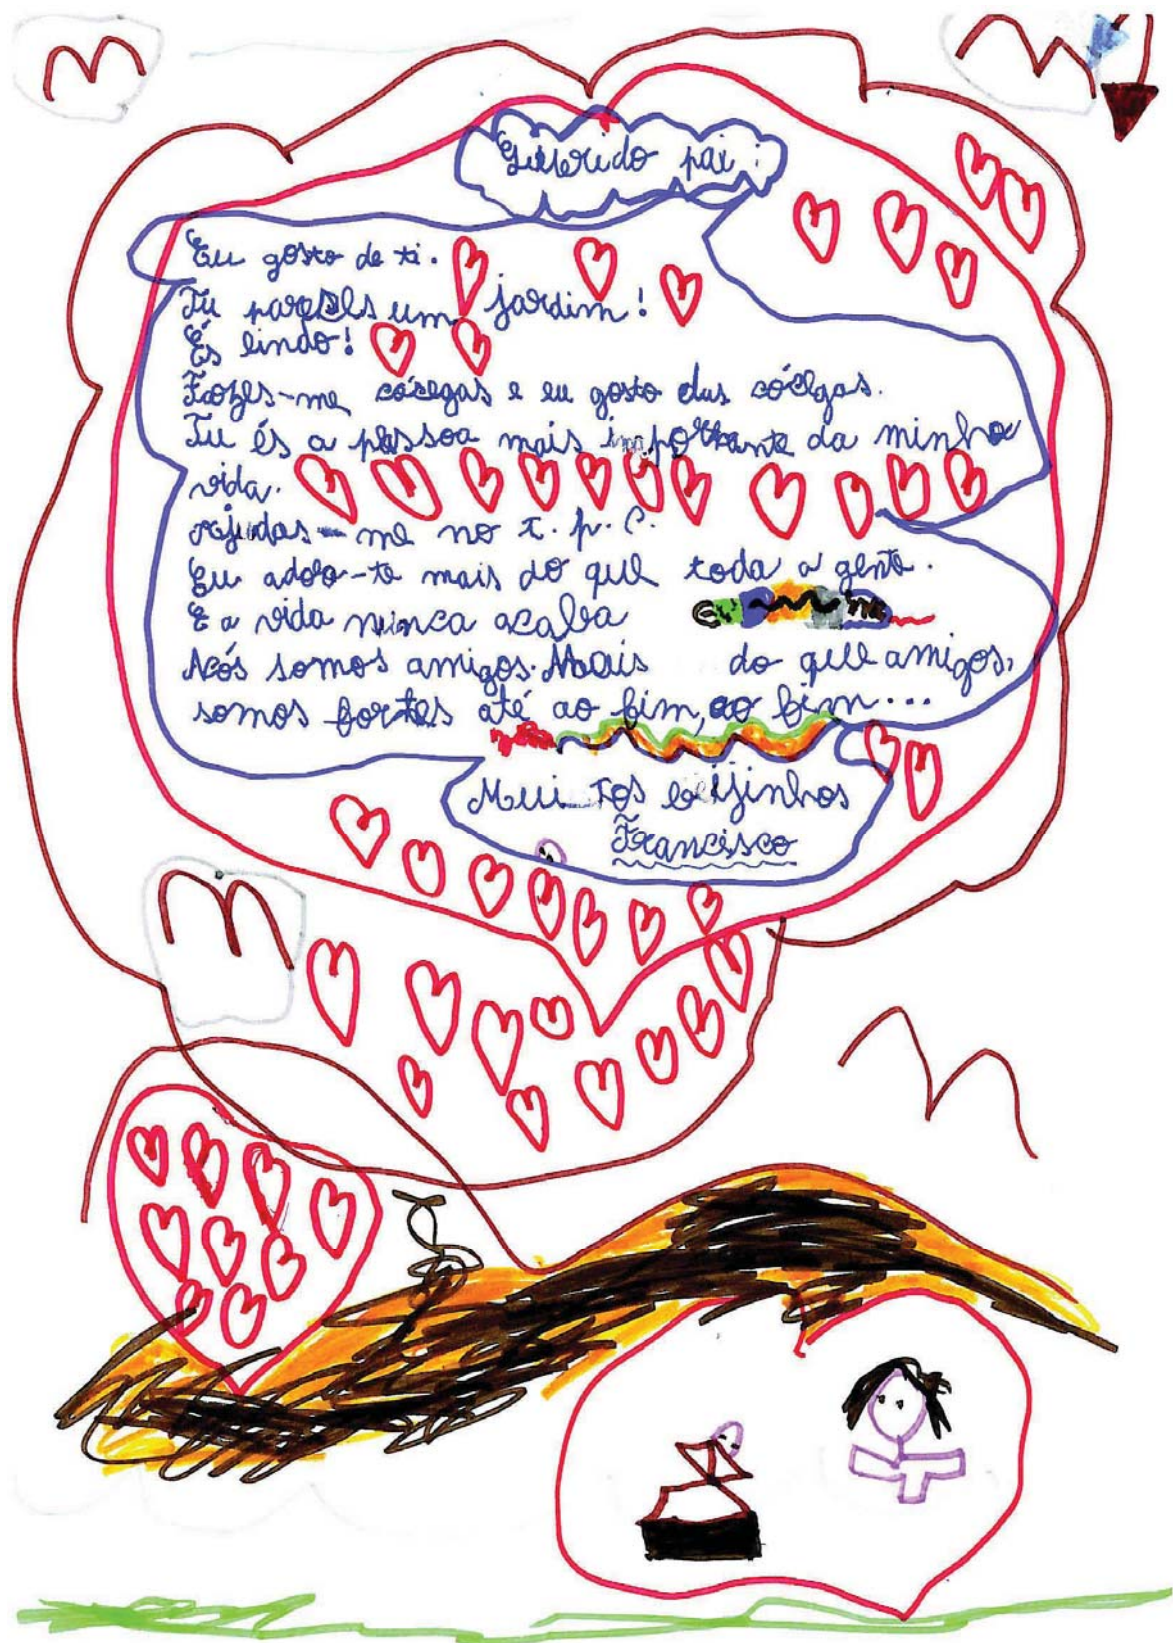 Querido pai:
Eu gosto de ti.
Tu pareces um jardim!
És lindo!
Fazes-me cócegas e eu gosto das cócegas.
Tu és a pessoa mais importante da minha
vida.
Ajudas-me no t.p.c.
Eu adoro-te mais do que toda a gente.
E a vida nunca acaba
Nós somos amigos. Mais do que amigos,
somos fortes até ao fim, ao fim...
Muitos beijinhos
Francisco